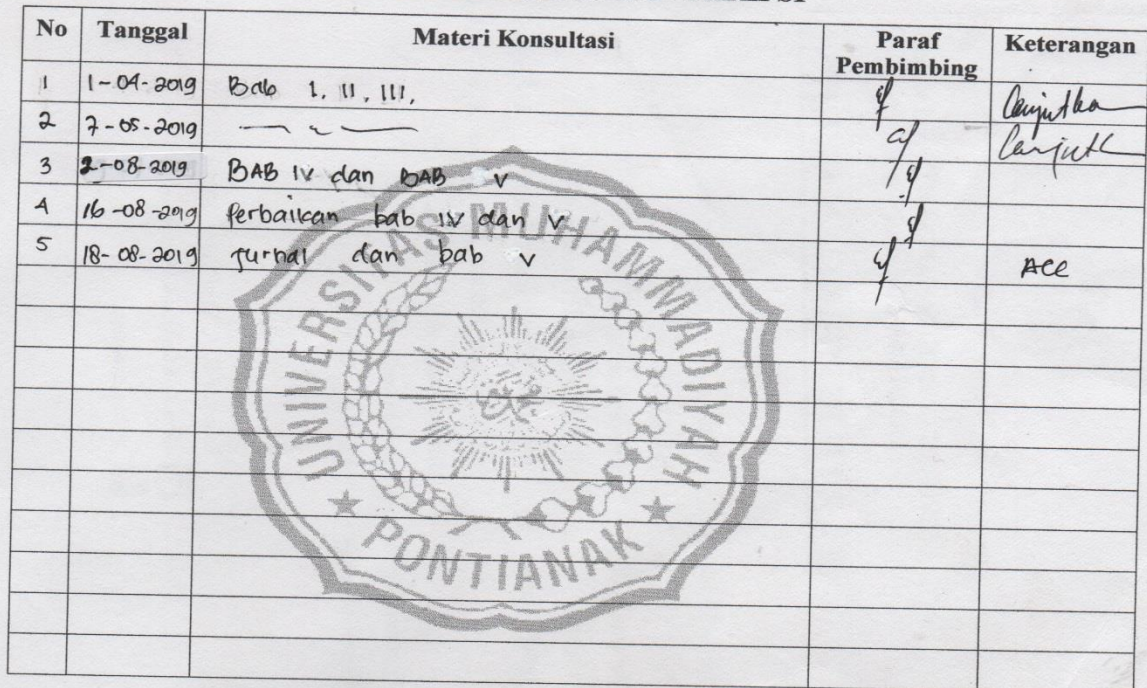 No Tanggal Materi Konsultasi Paraf Pembimbing Keterangan
1 1-04-2019 Bab I, II, III,
2 7-05-2019
3 2-08-2019 BAB IV dan BAB V
4 16-08-2019 Perbaikan bab IV dan V
5 18-08-2019 Jurnal dan bab V ACC
UNIVERSITAS MUHAMMADIYAH
PONTIANAK